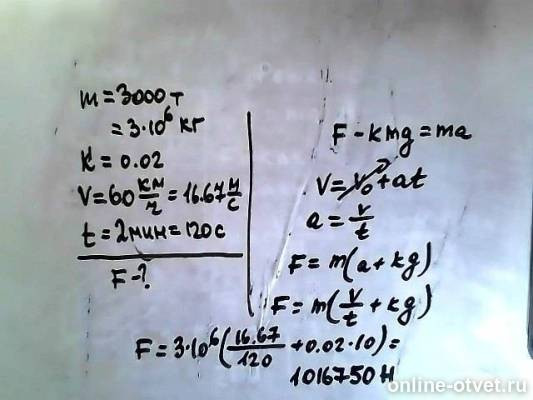 m = 3000 т
= 3·10⁶ кг
K = 0.02
V = 60 км/ч = 16.67 м/с
t = 2 мин = 120 с
F - ?
F - kmg = ma
V = V₀ + at
a = V/t
F = m(a + kg)
F = m(V/t + kg)
F = 3·10⁶(16.67/120 + 0.02·10) =
1016750 Н
online-otvet.ru